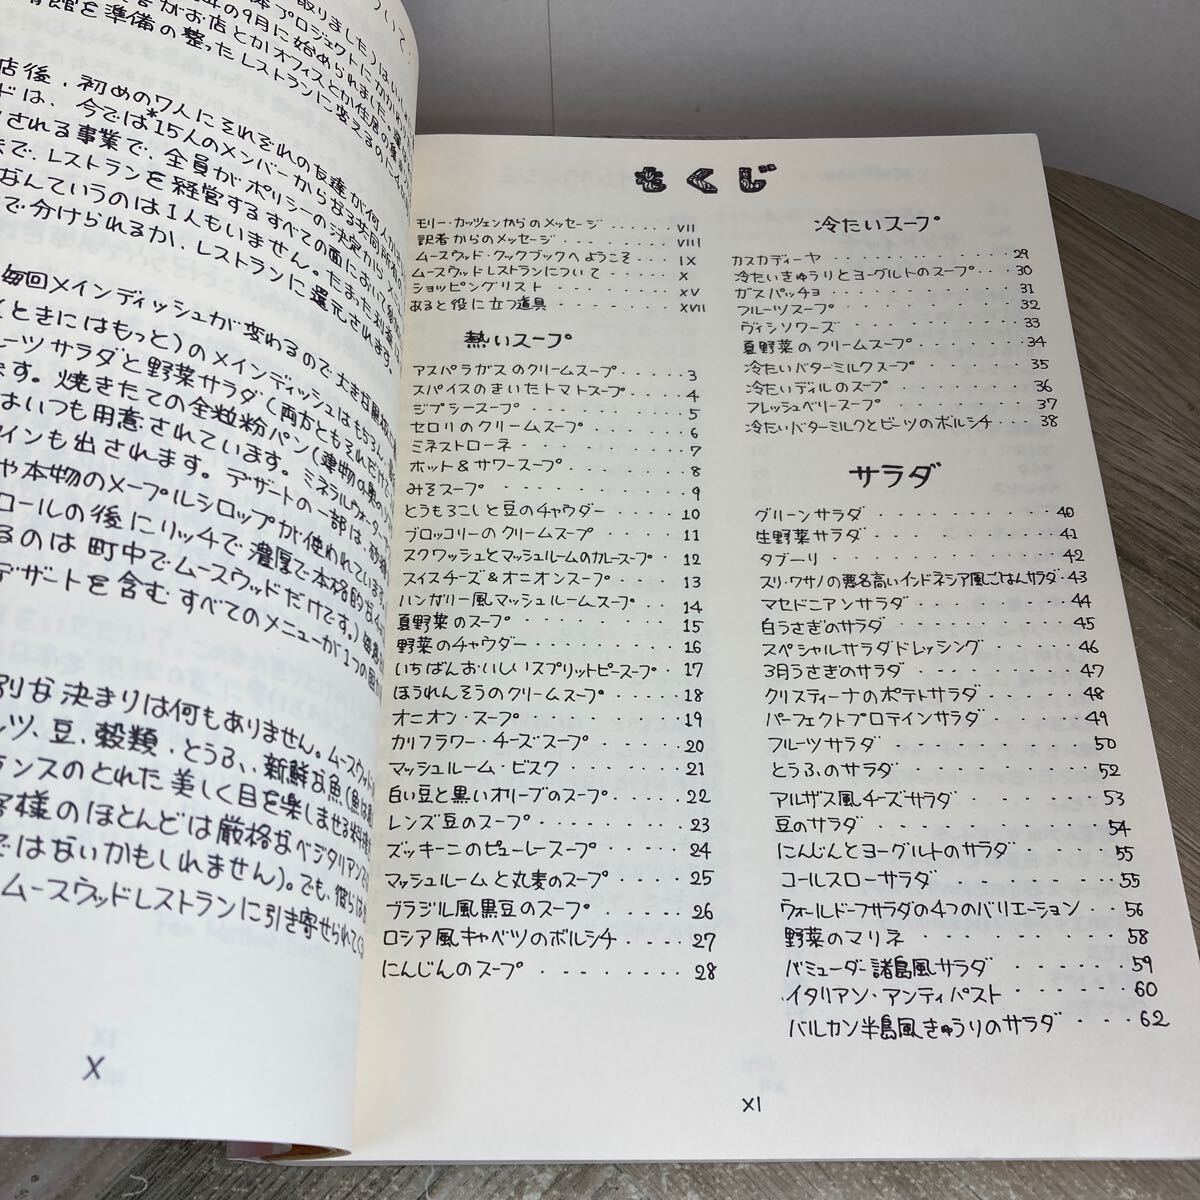 店後、初めの7人にそれぞれの友達が何人か
ドは、今では*15人のメンバーからなる共同所有
される事業で、全員がポリシーの決定から
まで、レストランを経営するすべての面において
なんていうのは1人もいません。たまった利益は
で分けられるか、レストランに還元されます。
毎回メインディッシュが変わるので大きな黒
くときにはもっと)のメインディッシュはもちろん、
ルーツサラダと野菜サラダ(両方ともそれだけで
ます。焼きたての全粒粉パン(
はいつも用意されています。ミネラルウォーター
インも出されます。デザートの一部は、
や本物のメープルシロップが使われています。
コールの後にリッチで濃厚で本格的な
るのは町中でムースウッドだけです。)
デザートを含むすべてのメニューが1つの
別な決まりは何もありません。ムースウッド
ッツ、豆、穀類、とうふ、新鮮な魚(魚は
ランスのとれた美しく目を楽しませる料理
客様のほとんどは厳格なベジタリアンで
ではないかもしれません)。でも、彼らは
ムースウッドレストランに引き寄せられてく
X
もくじ
モリー・カッツェンからのメッセージ ・・・・・ VII
訳者からのメッセージ ・・・・・・・・ VIII
ムースウッド・クックブックへようこそ ・・・・ IX
ムースウッドレストランについて ・・・・・ X
ショッピングリスト ・・・・・・・・ XV
あると役に立つ道具 ・・・・・・・・ XVII
熱いスープ
アスパラガスのクリームスープ ・・・・ 3
スパイスのきいたトマトスープ ・・・・ 4
ジプシースープ ・・・・・・・・ 5
セロリのクリームスープ ・・・・・・ 6
ミネストローネ ・・・・・・・・ 7
ホット&サワースープ ・・・・・・ 8
みそスープ ・・・・・・・・・ 9
とうもろこしと豆のチャウダー ・・・・ 10
ブロッコリーのクリームスープ ・・・・ 11
スクワッシュとマッシュルームのカレースープ ・・ 12
スイスチーズ&オニオンスープ ・・・・ 13
ハンガリー風マッシュルームスープ ・・・ 14
夏野菜のスープ ・・・・・・・・ 15
野菜のチャウダー ・・・・・・・ 16
いちばんおいしいスプリットピースープ ・・ 17
ほうれんそうのクリームスープ ・・・・ 18
オニオン・スープ ・・・・・・・ 19
カリフラワー・チーズスープ ・・・・ 20
マッシュルーム・ビスク ・・・・・ 21
白い豆と黒いオリーブのスープ ・・・・ 22
レンズ豆のスープ ・・・・・・・ 23
ズッキーニのピューレースープ ・・・・ 24
マッシュルームと丸麦のスープ ・・・・ 25
ブラジル風黒豆のスープ ・・・・・ 26
ロシア風キャベツのボルシチ ・・・・ 27
にんじんのスープ ・・・・・・・ 28
冷たいスープ
カスカディーヤ ・・・・・・・・ 29
冷たいきゅうりとヨーグルトのスープ ・・ 30
ガスパッチョ ・・・・・・・・ 31
フルーツスープ ・・・・・・・ 32
ヴィシソワーズ ・・・・・・・ 33
夏野菜のクリームスープ ・・・・・ 34
冷たいバターミルクスープ ・・・・ 35
冷たいディルのスープ ・・・・・・ 36
フレッシュベリースープ ・・・・・ 37
冷たいバターミルクとビーツのボルシチ ・・ 38
サラダ
グリーンサラダ ・・・・・・・・ 40
生野菜サラダ ・・・・・・・・ 41
タブーリ ・・・・・・・・・ 42
スリ・ワサノの悪名高いインドネシア風ごはんサラダ・43
マセドニアンサラダ ・・・・・・ 44
白うさぎのサラダ ・・・・・・・ 45
スペシャルサラダドレッシング ・・・・ 46
3月うさぎのサラダ ・・・・・・ 47
クリスティーナのポテトサラダ ・・・・ 48
パーフェクトプロテインサラダ ・・・・ 49
フルーツサラダ ・・・・・・・ 50
とうふのサラダ ・・・・・・・ 52
アルザス風チーズサラダ ・・・・・ 53
豆のサラダ ・・・・・・・・ 54
にんじんとヨーグルトのサラダ ・・・ 55
コールスローサラダ ・・・・・・ 55
ウォールドーフサラダの4つのバリエーション ・・ 56
野菜のマリネ ・・・・・・・・ 58
バミューダー諸島風サラダ ・・・・・ 59
イタリアン・アンティパスト ・・・・ 60
バルカン半島風きゅうりのサラダ ・・・ 62
XI